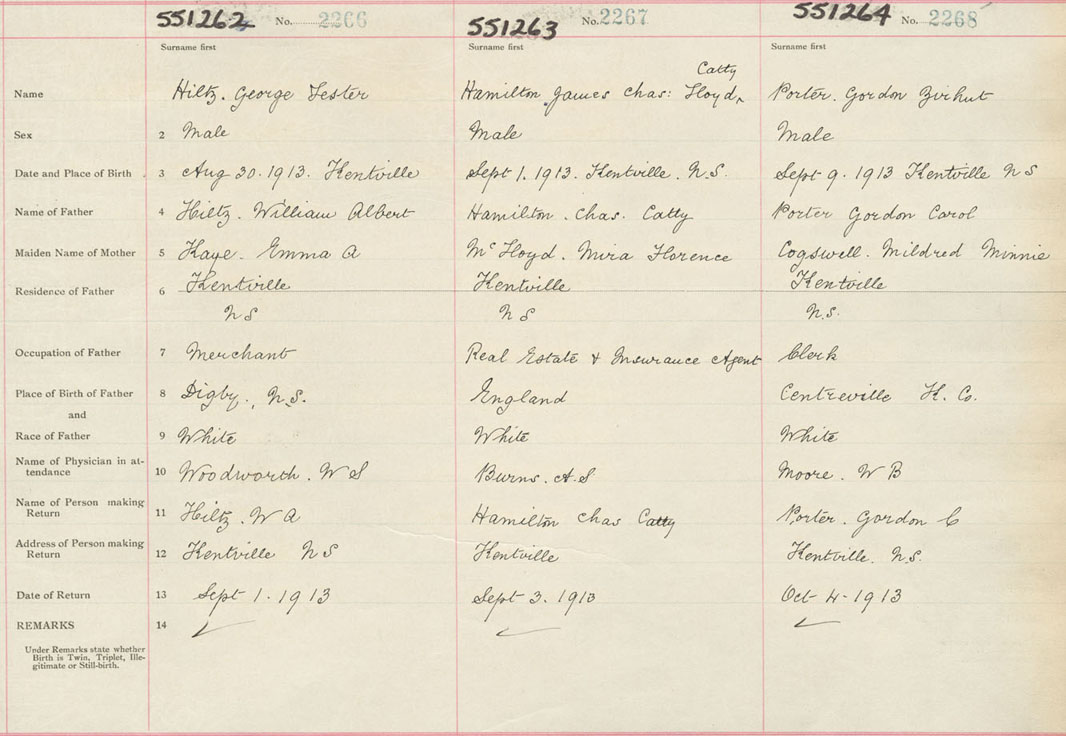 551262 No. 2266 551263 No. 2267 551264 No. 2268
Surname first Surname first Surname first
Catty
Name Hiltz. George Lester Hamilton James Chas: Lloyd Porter. Gordon
Sex 2 Male Male Male
Date and Place of Birth 3 Aug 30. 1913. Kentville Sept 1. 1913. Kentville. N.S. Sept 9. 1913 Kentville N S
Name of Father 4 Hiltz. William Albert Hamilton. Chas. Catty Porter Gordon Carol
Maiden Name of Mother 5 Kaye. Emma A McLloyd. Mira Florence Cogswell. Mildred Minnie
Residence of Father 6 Kentville Kentville Kentville
N S N S N.S.
Occupation of Father 7 Merchant Real Estate & Insurance Agent Clerk
Place of Birth of Father 8 Digby, N.S. England Centreville K. Co.
and
Race of Father 9 White White White
Name of Physician in at-
tendance 10 Woodworth. W S Burns. A. S Moore. W B
Name of Person making
Return 11 Hiltz. W A Hamilton Chas Catty Porter. Gordon C
Address of Person making
Return 12 Kentville N S Kentville Kentville. N.S.
Date of Return 13 Sept 1. 1913 Sept 3. 1913 Oct 4-1913
REMARKS 14
Under Remarks state whether
Birth is Twin, Triplet, Ille-
gitimate or Still-birth.